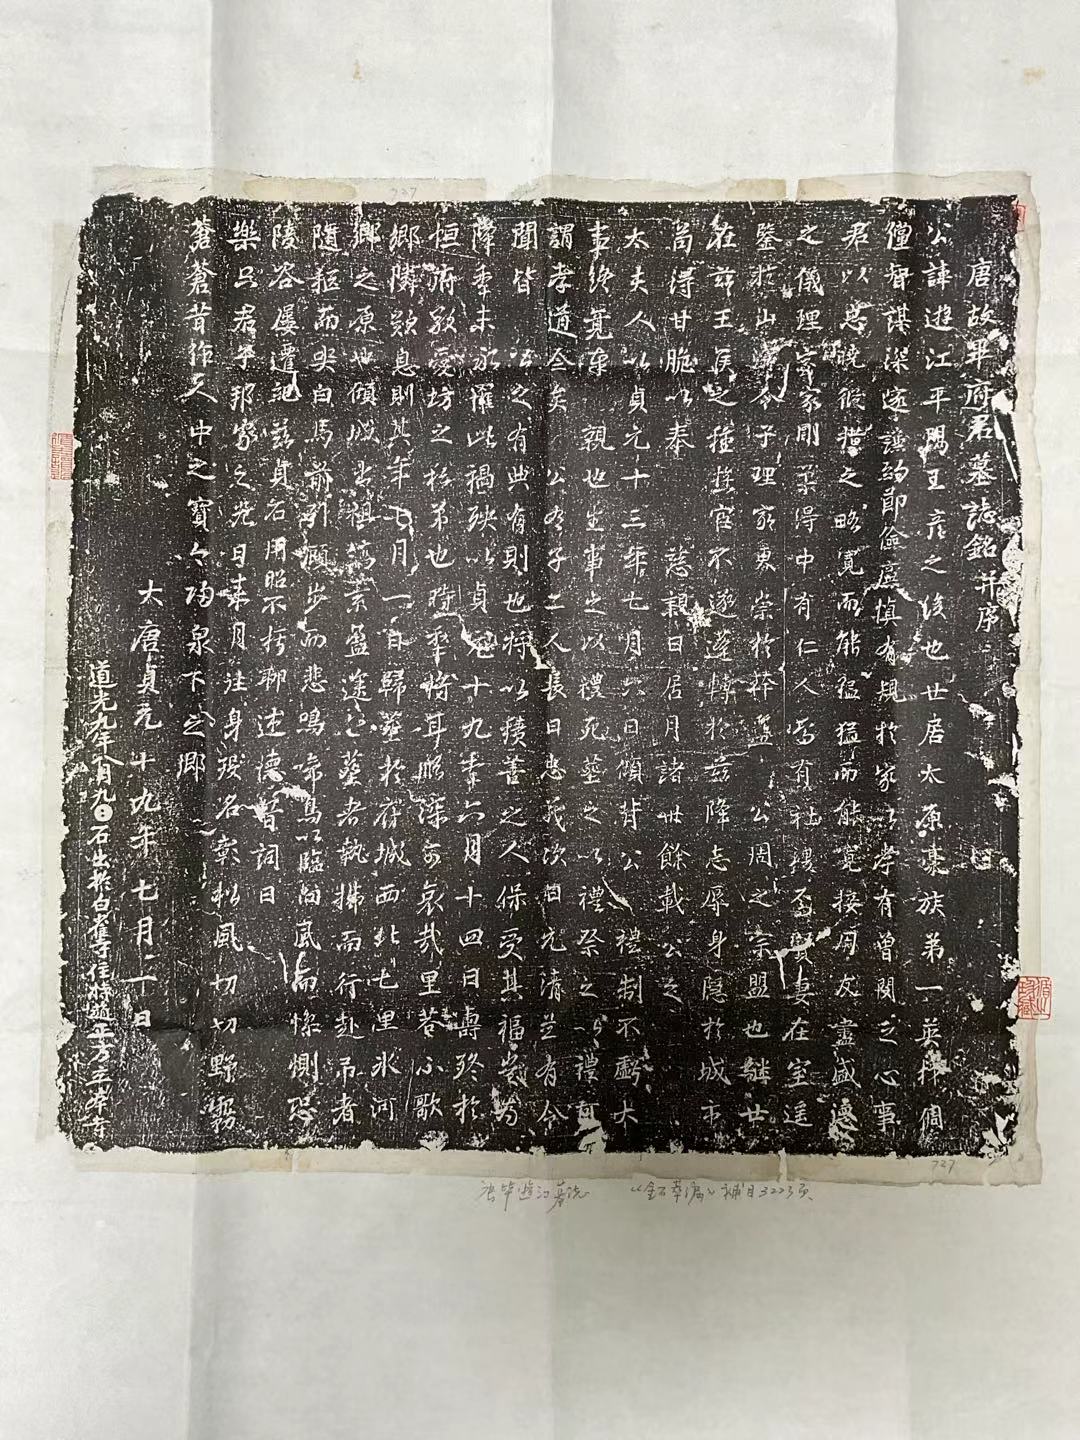 唐故畢府君墓誌銘并序
公諱遊江平陽王彥之後也世居太原豪族弟一英拌倜
儻智謀深遠謹約節儉廉慎有規於家以孝有曾閔之心事
君以忠曉俊禮之略寬而能猛猛而能寬接用友盡盛德
之儀理家剛柔得中有仁人焉有社稷盃賢妻在室遥
鑒於山濤令子理家事崇於幹蠱公周之宗盟也驎廿
莊茚王侯之種捨官不遂蓬轉於茲降志辱身隱於城市
苟得甘脆以奉慈親日居月諸卅餘載公之
太夫人以貞元十三年七月六日傾背公禮制不虧大
事終竟葬親也生事之以禮死葬之以禮祭之以禮可
謂孝道全矣公有子二人長曰忠義次曰元清並有令
聞皆公之有典有則也將以積善之人保受其福豈為
降年未永罹此禍殃以貞元十九年六月十四日專終於
恒府敬愛坊之私弟也時年將耳順深可哀哉里巷不歌
鄉隣歎息則其年七月二日歸葬於府城西北七里永河
鄉之原也傾城出祖縞素盈途送葬者執拂而行赴吊者
隨柩而哭白馬前引顧步而悲鳴啼鳥以臨向風而慘惻恐
陵谷屢遷記茲貞石用昭不朽聊述德音詞曰
樂只君子邦家之光日來月往身歿名彰松風切切野霧
蒼蒼昔作人中之寶今為泉下之郎
大唐貞元十九年七月二日
道光九年月九日石出於白雀寺住持趙正方立本寺
唐畢遊江墓誌
《金石萃編》補目3223頁
727
727